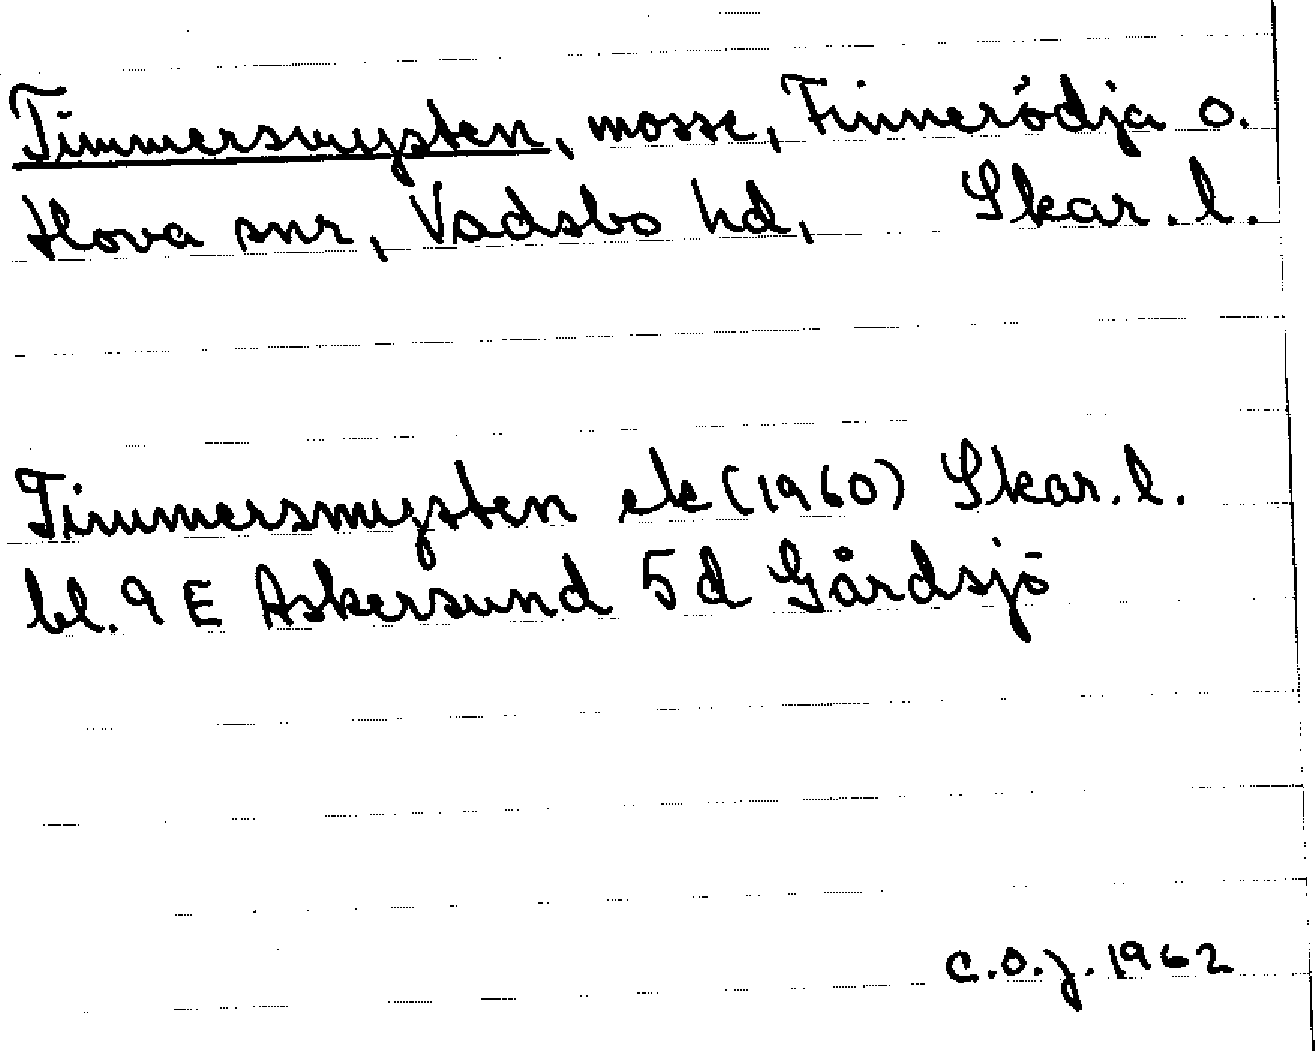 Timmersmysten, mosse, Finnerödja o.
Hova snr, Vadsbo hd, Skar.l.
Timmersmysten ek (1960) Skar.l.
bl. 9 E Askersund 5d Gårdsjö
C.O.J. 1962